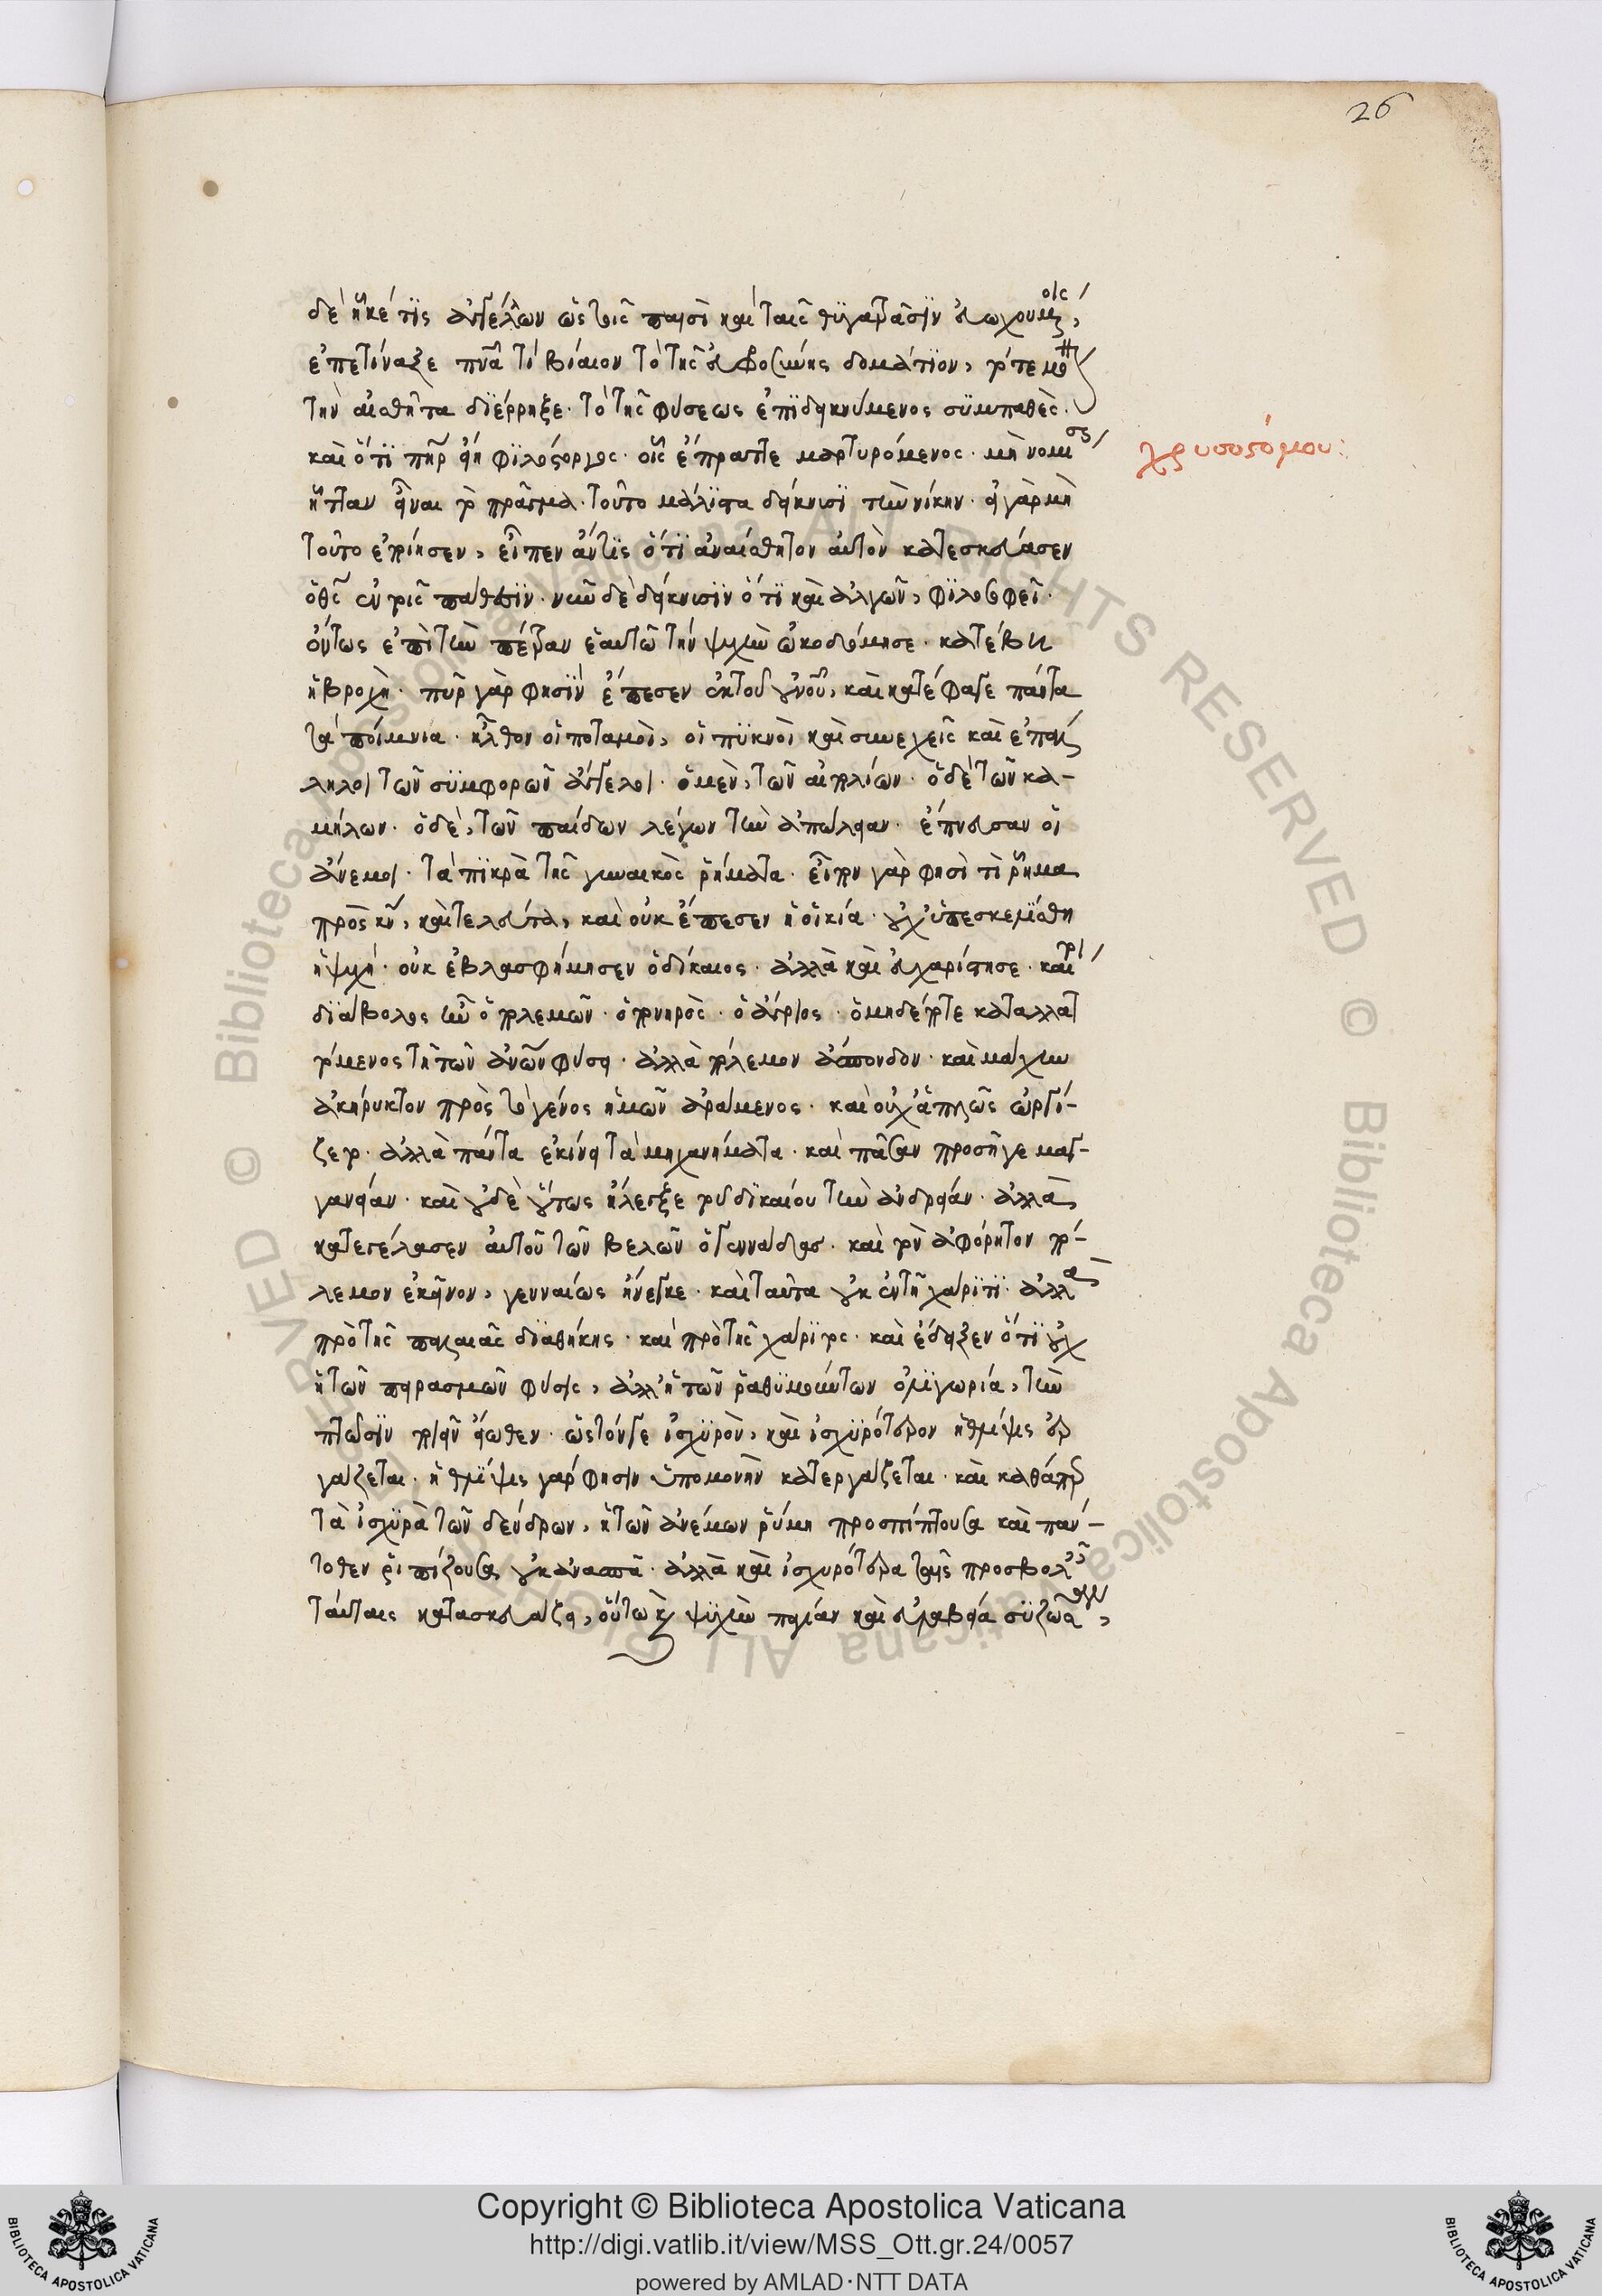 26
δὲ ἧκέ τις ἀγγέλλων ὡς τοῖς παισὶ καὶ ταῖς θυγατράσιν εὐωχουμένοις,
ἐπετίναξε πνᾶ τι βίαιον τὸ τῆς εὐφροσύνης δωμάτιον,
τὴν αἰσθῆτα διέρρηξε. τὸ τῆς φύσεως ἐπιδεικνύμενος συμπαθές.
καὶ ὅτι πηρ ἦν φιλόστοργος. οἷς ἔπραττε μαρτυρόμενος. μὴ νομίσῃς
χρυσοστόμου:
ἧτταν εἶναι τὸ πρᾶγμα. τοῦτο μάλιστα δείκνυσι τὴν νίκην. εἰ γὰρ μὴ
τοῦτο ἐποίησεν, εἶπεν ἄν τις ὅτι ἀναίσθητον αὐτὸν κατεσκεύασεν
ὁ θς ἐν τοῖς πάθεσιν. νῦν δὲ δείκνυσιν ὅτι καὶ ἀλγῶν, φιλοσοφεῖ.
οὕτως ἐπὶ τὴν πέτραν ἑαυτῶ τὴν ψυχὴν ὠκοδόμησε. κατέβη
ἡ βροχή. πῦρ γὰρ φησὶν ἔπεσεν ἐκ τοῦ οὐνοῦ, καὶ κατέφαγε πάντα
τὰ ποίμνια. ἦλθον οἱ ποταμοὶ, οἱ πυκνοὶ καὶ συνεχεῖς καὶ ἐπαλ
ληλοι τῶν συμφορῶν ἄγγελοι. ὁ μὲν, τῶν αἰπολίων. ὁ δὲ τῶν κα-
μήλων. ὁ δὲ, τῶν παίδων λέγων τὴν ἀπώλειαν. ἔπνευσαν οἱ
ἄνεμοι. τὰ πικρὰ τῆς γυναικὸς ῥήματα. εἶπον γὰρ φησὶ τὶ ῥῆμα
πρὸς κν, καὶ τελεύτα, καὶ οὐκ ἔπεσεν ἡ οἰκία. οὐχ ὑπεσκελίσθη
ἡ ψυχή. οὐκ ἐβλασφήμησεν ὁ δίκαιος. ἀλλὰ καὶ εὐχαρίστησε. καίτοι
διάβολος ἦν ὁ πολεμῶν. ὁ πονηρὸς. ὁ ἄγριος. ὁ μηδέποτε καταλλατ
τόμενος τῆ τῶν ἀνῶν φύσει. ἀλλὰ πόλεμον ἄσπονδον. καὶ μάχην
ἀκήρυκτον πρὸς τὸ γένος ἡμῶν ἀράμενος. καὶ οὐχ ἁπλῶς ὠργί-
ζετο. ἀλλὰ πάντα ἐκίνει τὰ μηχανήματα. καὶ πᾶσαν προσῆγε μαγ-
γανείαν. καὶ οὐδὲ οὕτως ἤλεγξε τοῦ δικαίου τὴν ἀνδρείαν. ἀλλὰ
κατεγέλασεν αὐτοῦ τῶν βελῶν ὁ γεννάδας. καὶ τὸν ἀφόρητον πό-
λεμον ἐκεῖνον, γενναίως ἤνεγκε. καὶ ταῦτα οὐκ ἐν τῆ χάριτι. ἀλλὰ
πρὸ τῆς παλαιᾶς διαθήκης. καὶ πρὸ τῆς χάριτος. καὶ ἔδειξεν ὅτι οὐχ
ἡ τῶν πειρασμῶν φύσις, ἀλλ' ἡ τῶν ῥαθυμούντων ὀλιγωρία, τὴν
πτῶσιν ποιεῖν εἴωθεν. ὡς τόν γε ἰσχυρὸν, καὶ ἰσχυρότερον ἡ θλίψις ἐρ
γάζεται. ἡ θλίψις γάρ φησιν ὑπομονὴν κατεργάζεται. καὶ καθάπερ
τὰ ἰσχυρὰ τῶν δένδρων, ἡ τῶν ἀνέμων ῥύμη προσπίπτουσα καὶ παν-
τόθεν ῥιπίζουσα οὐκ ἀνασπᾶ. ἀλλὰ καὶ ἰσχυρότερα ταῖς προσβολαῖς
ταύταις κατασκευάζει, οὕτω καὶ ψυχὴν ἁγίαν καὶ εὐλαβεία συζῶσαν,
Copyright © Biblioteca Apostolica Vaticana
http://digi.vatlib.it/view/MSS_Ott.gr.24/0057
powered by AMLAD·NTT DATA